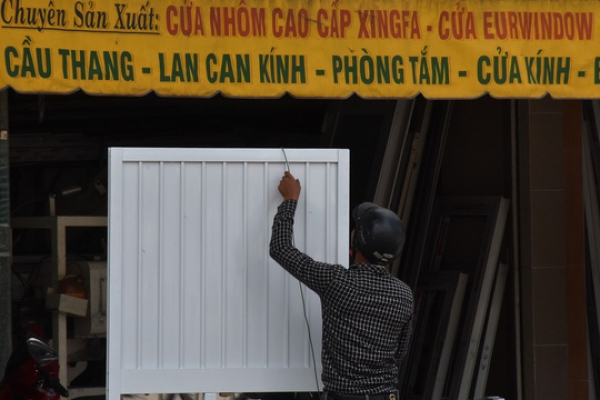 Chuyên Sản Xuất: CỬA NHÔM CAO CẤP XINGFA - CỬA EURWINDOW
CẦU THANG - LAN CAN KÍNH - PHÒNG TẮM - CỬA KÍNH -